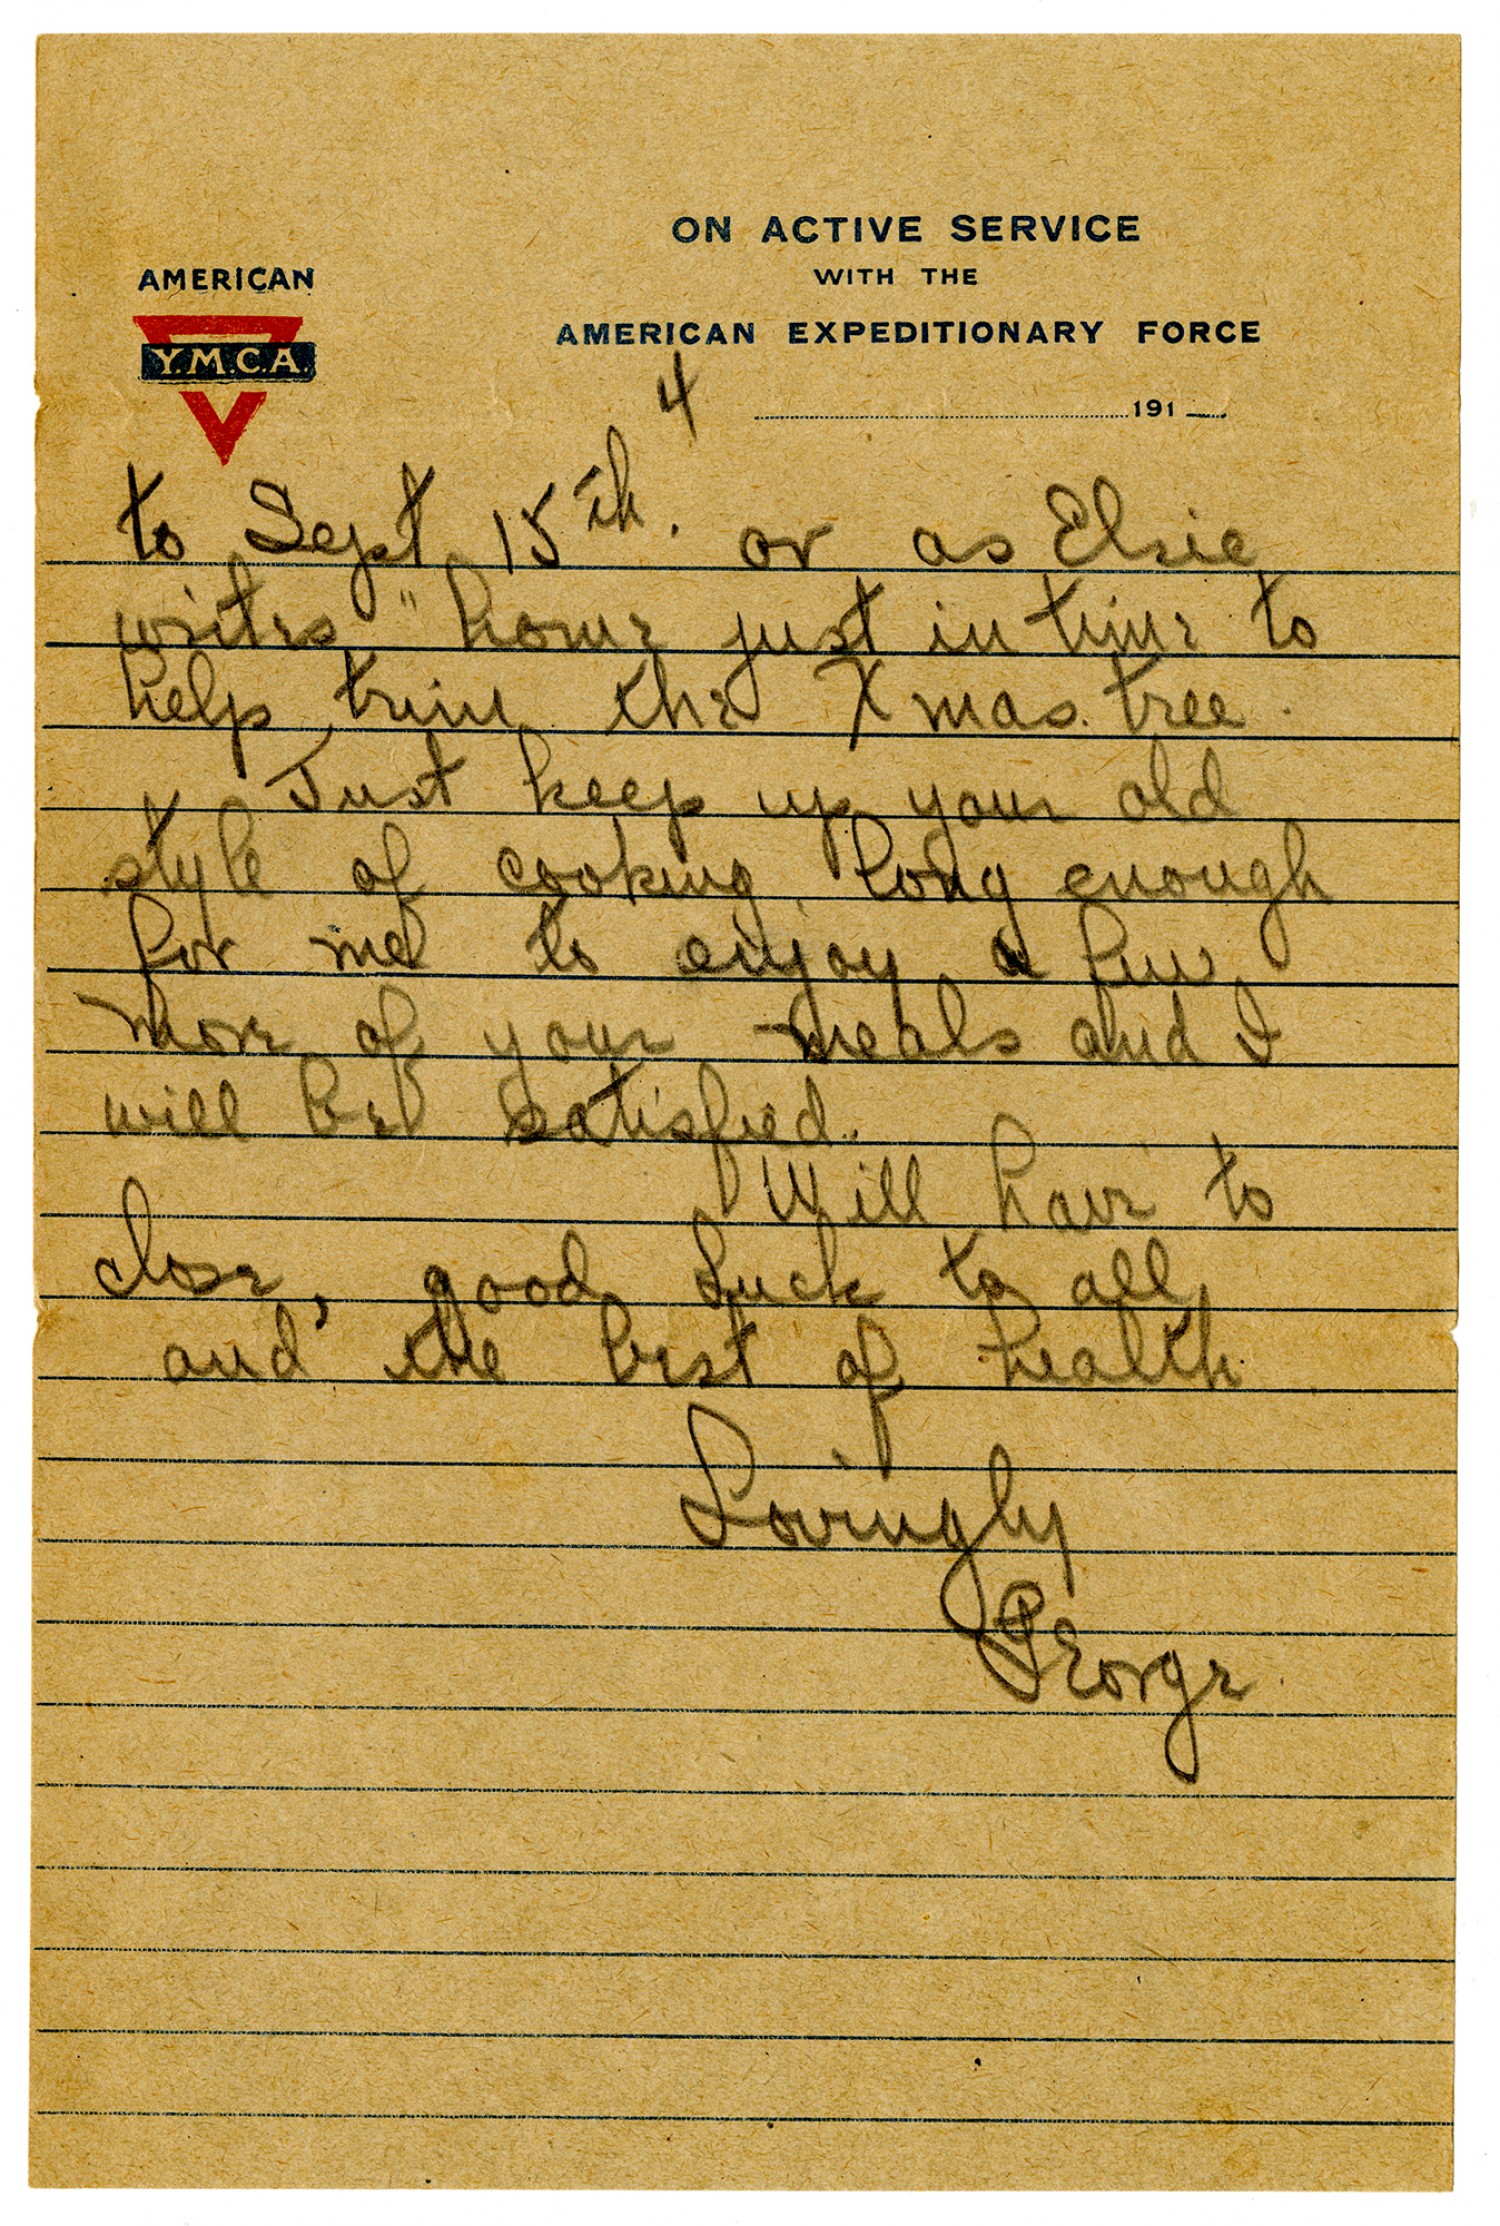 ON ACTIVE SERVICE
WITH THE
AMERICAN EXPEDITIONARY FORCE
AMERICAN
Y.M.C.A.
191
4
to Sept 15th. or as Elsie
writes "home just in time to
help trim the Xmas tree.
Just keep up your old
style of cooking long enough
for me to enjoy a few
more of your meals and I
will be satisfied.
Will have to
close, good luck to all
and the best of health
Lovingly
George